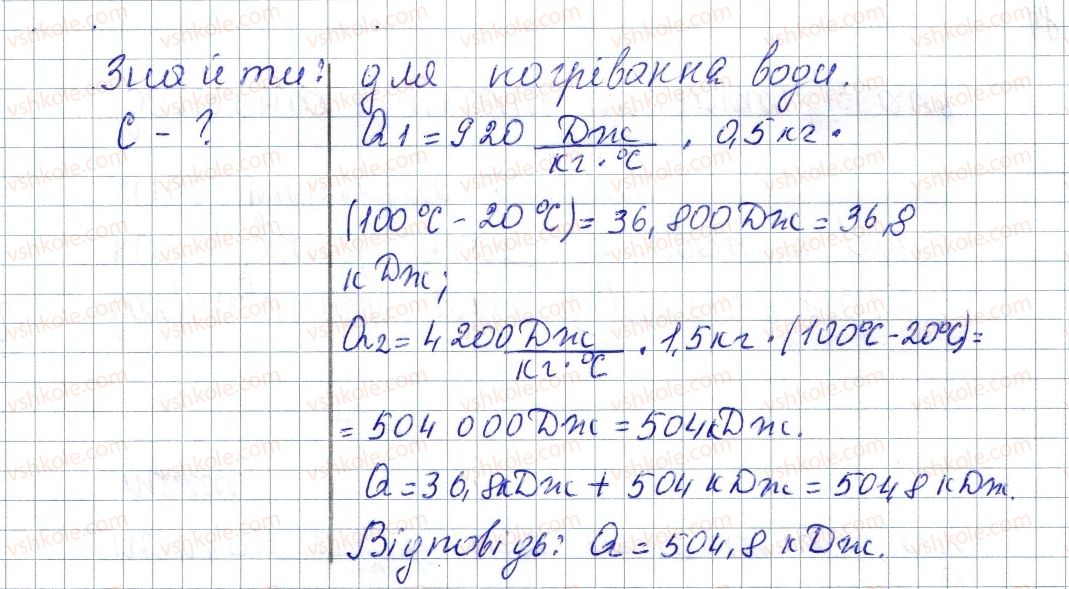 Знайти: для нагрівання води.
C - ? Q1 = 920 Дж/кг·°C · 0,5 кг ·
(100°C - 20°C) = 36,800 Дж = 36,8
кДж;
Q2 = 4200 Дж/кг·°C · 1,5 кг · (100°C - 20°C) =
= 504 000 Дж = 504 кДж.
Q = 36,8 кДж + 504 кДж = 504 8 кДж.
Відповідь: Q = 504,8 кДж.
vshkole.com